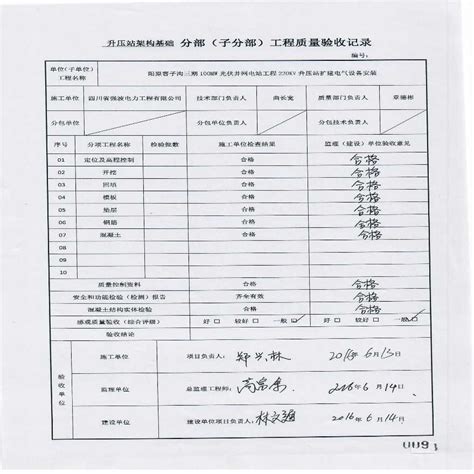 升压站架构基础 分部（子分部）工程质量验收记录
编号：
单位（子单位）工程名称 阳原曹子沟三期100MW光伏并网电站工程220KV升压站扩建电气设备安装
施工单位 四川省强波电力工程有限公司 技术部门负责人 曲长宽 质量部门负责人 章德彬
分包单位 分包单位负责人 分包技术负责人
序号 分项工程名称 检验批数 施工单位检查结果 监理（建设）单位验收意见
01 定位及高程控制 合格 合格
02 开挖 合格 合格
03 回填 合格 合格
04 模板 合格 合格
05 垫层 合格 合格
06 钢筋 合格 合格
07 混凝土 合格 合格
08
09
10
质量控制资料 合格 合格
安全和功能检验（检测）报告 齐全有效 合格
混凝土结构实体检验 合格 合格
感观质量验收（综合评级） 好 □ 较好 □ 一般 ☑ 好 □ 较好 □ 一般 ☑
验收结论
验收单位
施工单位 项目负责人：郑兴林 2016年6月13日
监理单位 总监理工程师： 2016年6月14日
建设单位 建设单位项目负责人：林文迪 2016年6月14日
0091